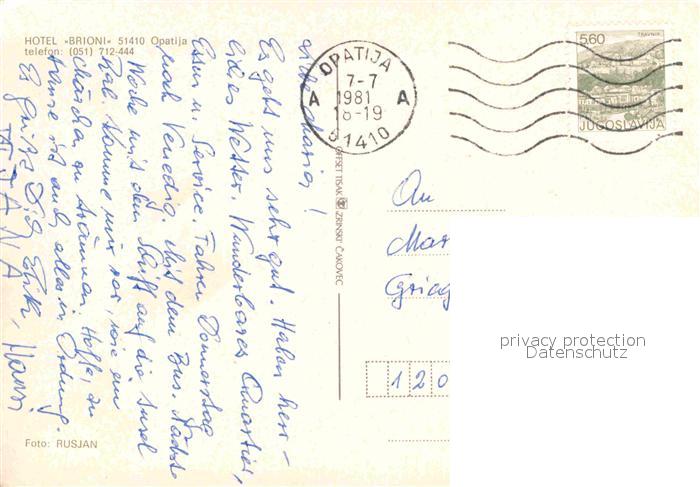 HOTEL »BRIONI« 51410 Opatija
telefon: (051) 712-444
OPATIJA
7-7
A 1981 A
18-19
51410
5,60
TRAVNIK
JUGOSLAVIJA
Liebe Maria!
Es geht uns sehr gut. Haben herr-
liches Wetter. Wunderbares Quartier,
Essen u. Service. Fahren Donnerstag
nach Venedig. Mit dem Bus. Nächste
Woche mit dem Schiff auf die Insel
Rab. Komme mir vor, wie ein
zu träumen. Hoffe, zu
Hause ist auch alles in Ordnung.
Es grüßt Dich Erik, Hansi,
TATJANA
OFFSET TISAK ZRINSKI ČAKOVEC
An
Mar
120
privacy protection
Datenschutz
Foto: RUSJAN